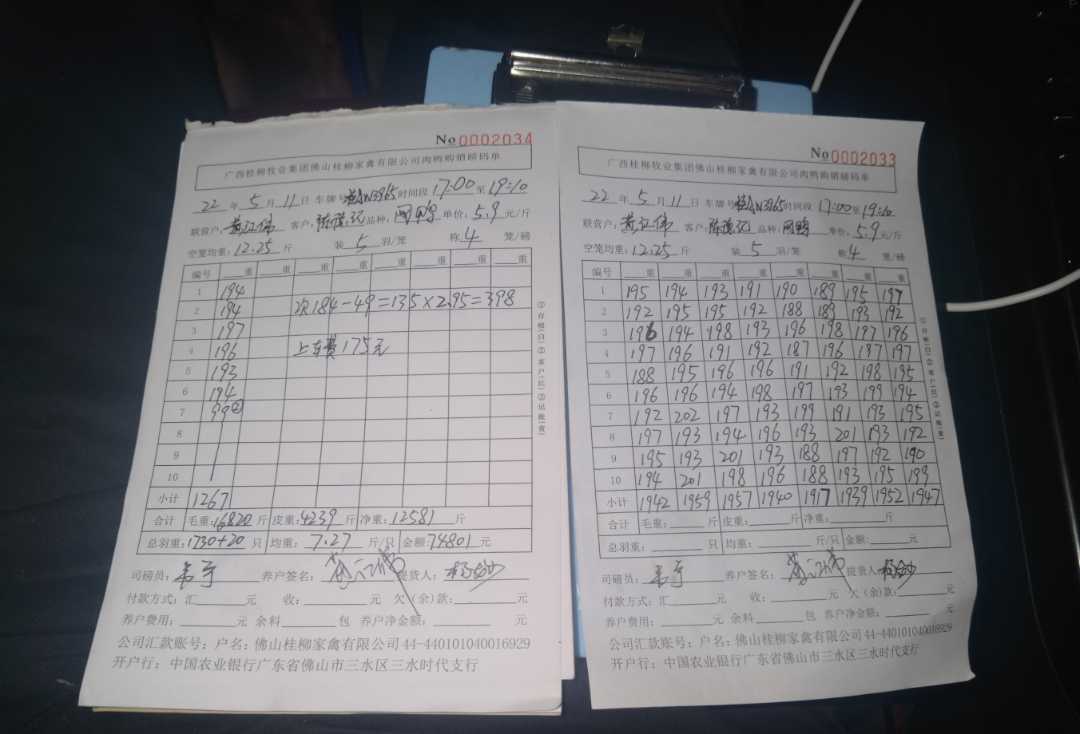 No 0002034
广西桂柳牧业集团佛山桂柳家禽有限公司肉鸭购销磅码单
22 年 5 月 11 日 车牌号 时间段 17:00 至 19:10
联营户: 黄江伟 客户: 陈茂记 品种: 网鸭 单价: 5.9 元/斤
空笼均重: 12.25 斤 装 5 羽/笼 称 4 笼/磅
编号 重 重 重 重 重 重 重 重
1 194
2 194 次184-49=135×2.95=398
3 197
4 196 上车费175元
5 193
6 194
7 99②
8
9
10
小计 1267
合计 毛重: 16820 斤 皮重: 4239 斤 净重: 12581 斤
总羽重: 1730+20 只 均重: 7.27 斤/只 金额: 74801 元
司磅员: 养户签名: 提货人:
付款方式: 汇 元 收: 元 欠(余)款: 元
养户费用: 元 余料 包 养户净金额: 元
公司汇款账号: 户名: 佛山桂柳家禽有限公司44-440101040016929
开户行: 中国农业银行广东省佛山市三水区三水时代支行
①存根(白)②客户(红)③记账(黄)
No 0002033
广西桂柳牧业集团佛山桂柳家禽有限公司肉鸭购销磅码单
22 年 5 月 11 日 车牌号 时间段 17:00 至 19:10
联营户: 黄江伟 客户: 陈茂记 品种: 网鸭 单价: 5.9 元/斤
空笼均重: 12.25 斤 装 5 羽/笼 称 4 笼/磅
编号 重 重 重 重 重 重 重 重
1 195 194 193 191 190 189 195 197
2 192 195 195 192 188 189 193 192
3 196 194 198 193 196 198 197 196
4 197 196 191 192 187 196 197 197
5 188 195 196 196 191 192 198 195
6 196 196 194 198 197 193 199 194
7 192 202 197 193 199 191 193 195
8 197 193 194 196 193 201 193 192
9 195 193 201 193 188 197 192 190
10 194 201 198 196 188 193 195 199
小计 1942 1959 1957 1940 1917 1939 1952 1947
合计 毛重: 斤 皮重: 斤 净重: 斤
总羽重: 只 均重: 斤/只 金额: 元
司磅员: 养户签名: 提货人:
付款方式: 汇 元 收: 元 欠(余)款: 元
养户费用: 元 余料 包 养户净金额: 元
公司汇款账号: 户名: 佛山桂柳家禽有限公司44-440101040016929
开户行: 中国农业银行广东省佛山市三水区三水时代支行
①存根(白)②客户(红)③记账(黄)